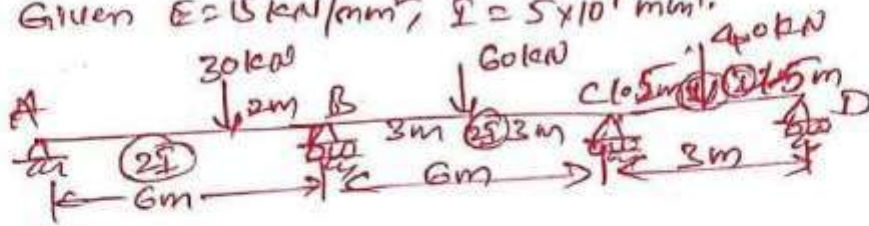 Given E=15 kN/mm², I = 5x10⁹ mm⁴.
30kN 60kN 40kN
A 2m B 3m 2I 3m C 1.5m I 1.5m D
2I
6m 6m 3m